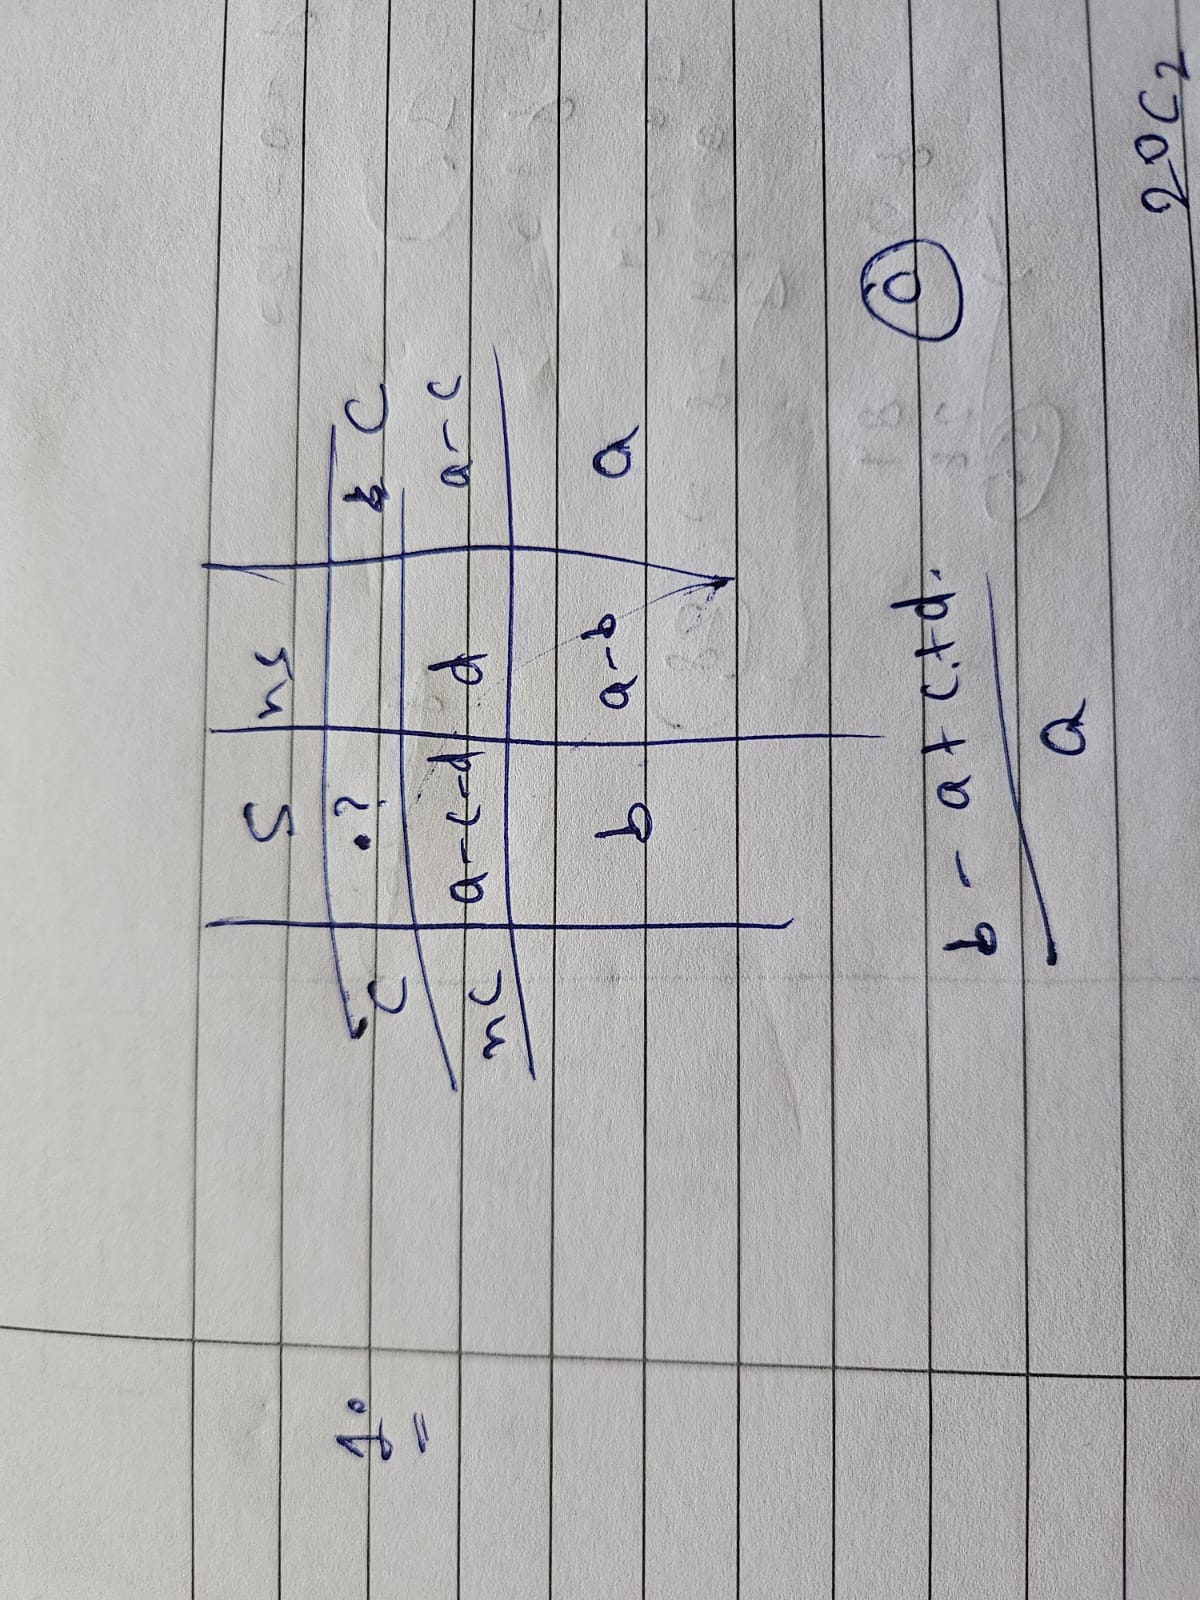 1.
S ns
C .? c
nc a-c-d d a-c
b a-b a
b - a + c + d.
a
20C2